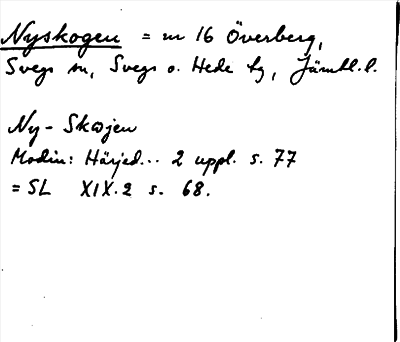 Nyskogen = m 16 Överberg,
Svegs sn, Svegs o. Hede tg, Jämtl. l.
Ny-Skɷjen
Modin: Härjed... 2 uppl. s. 77
= SL XIX.2 s. 68.